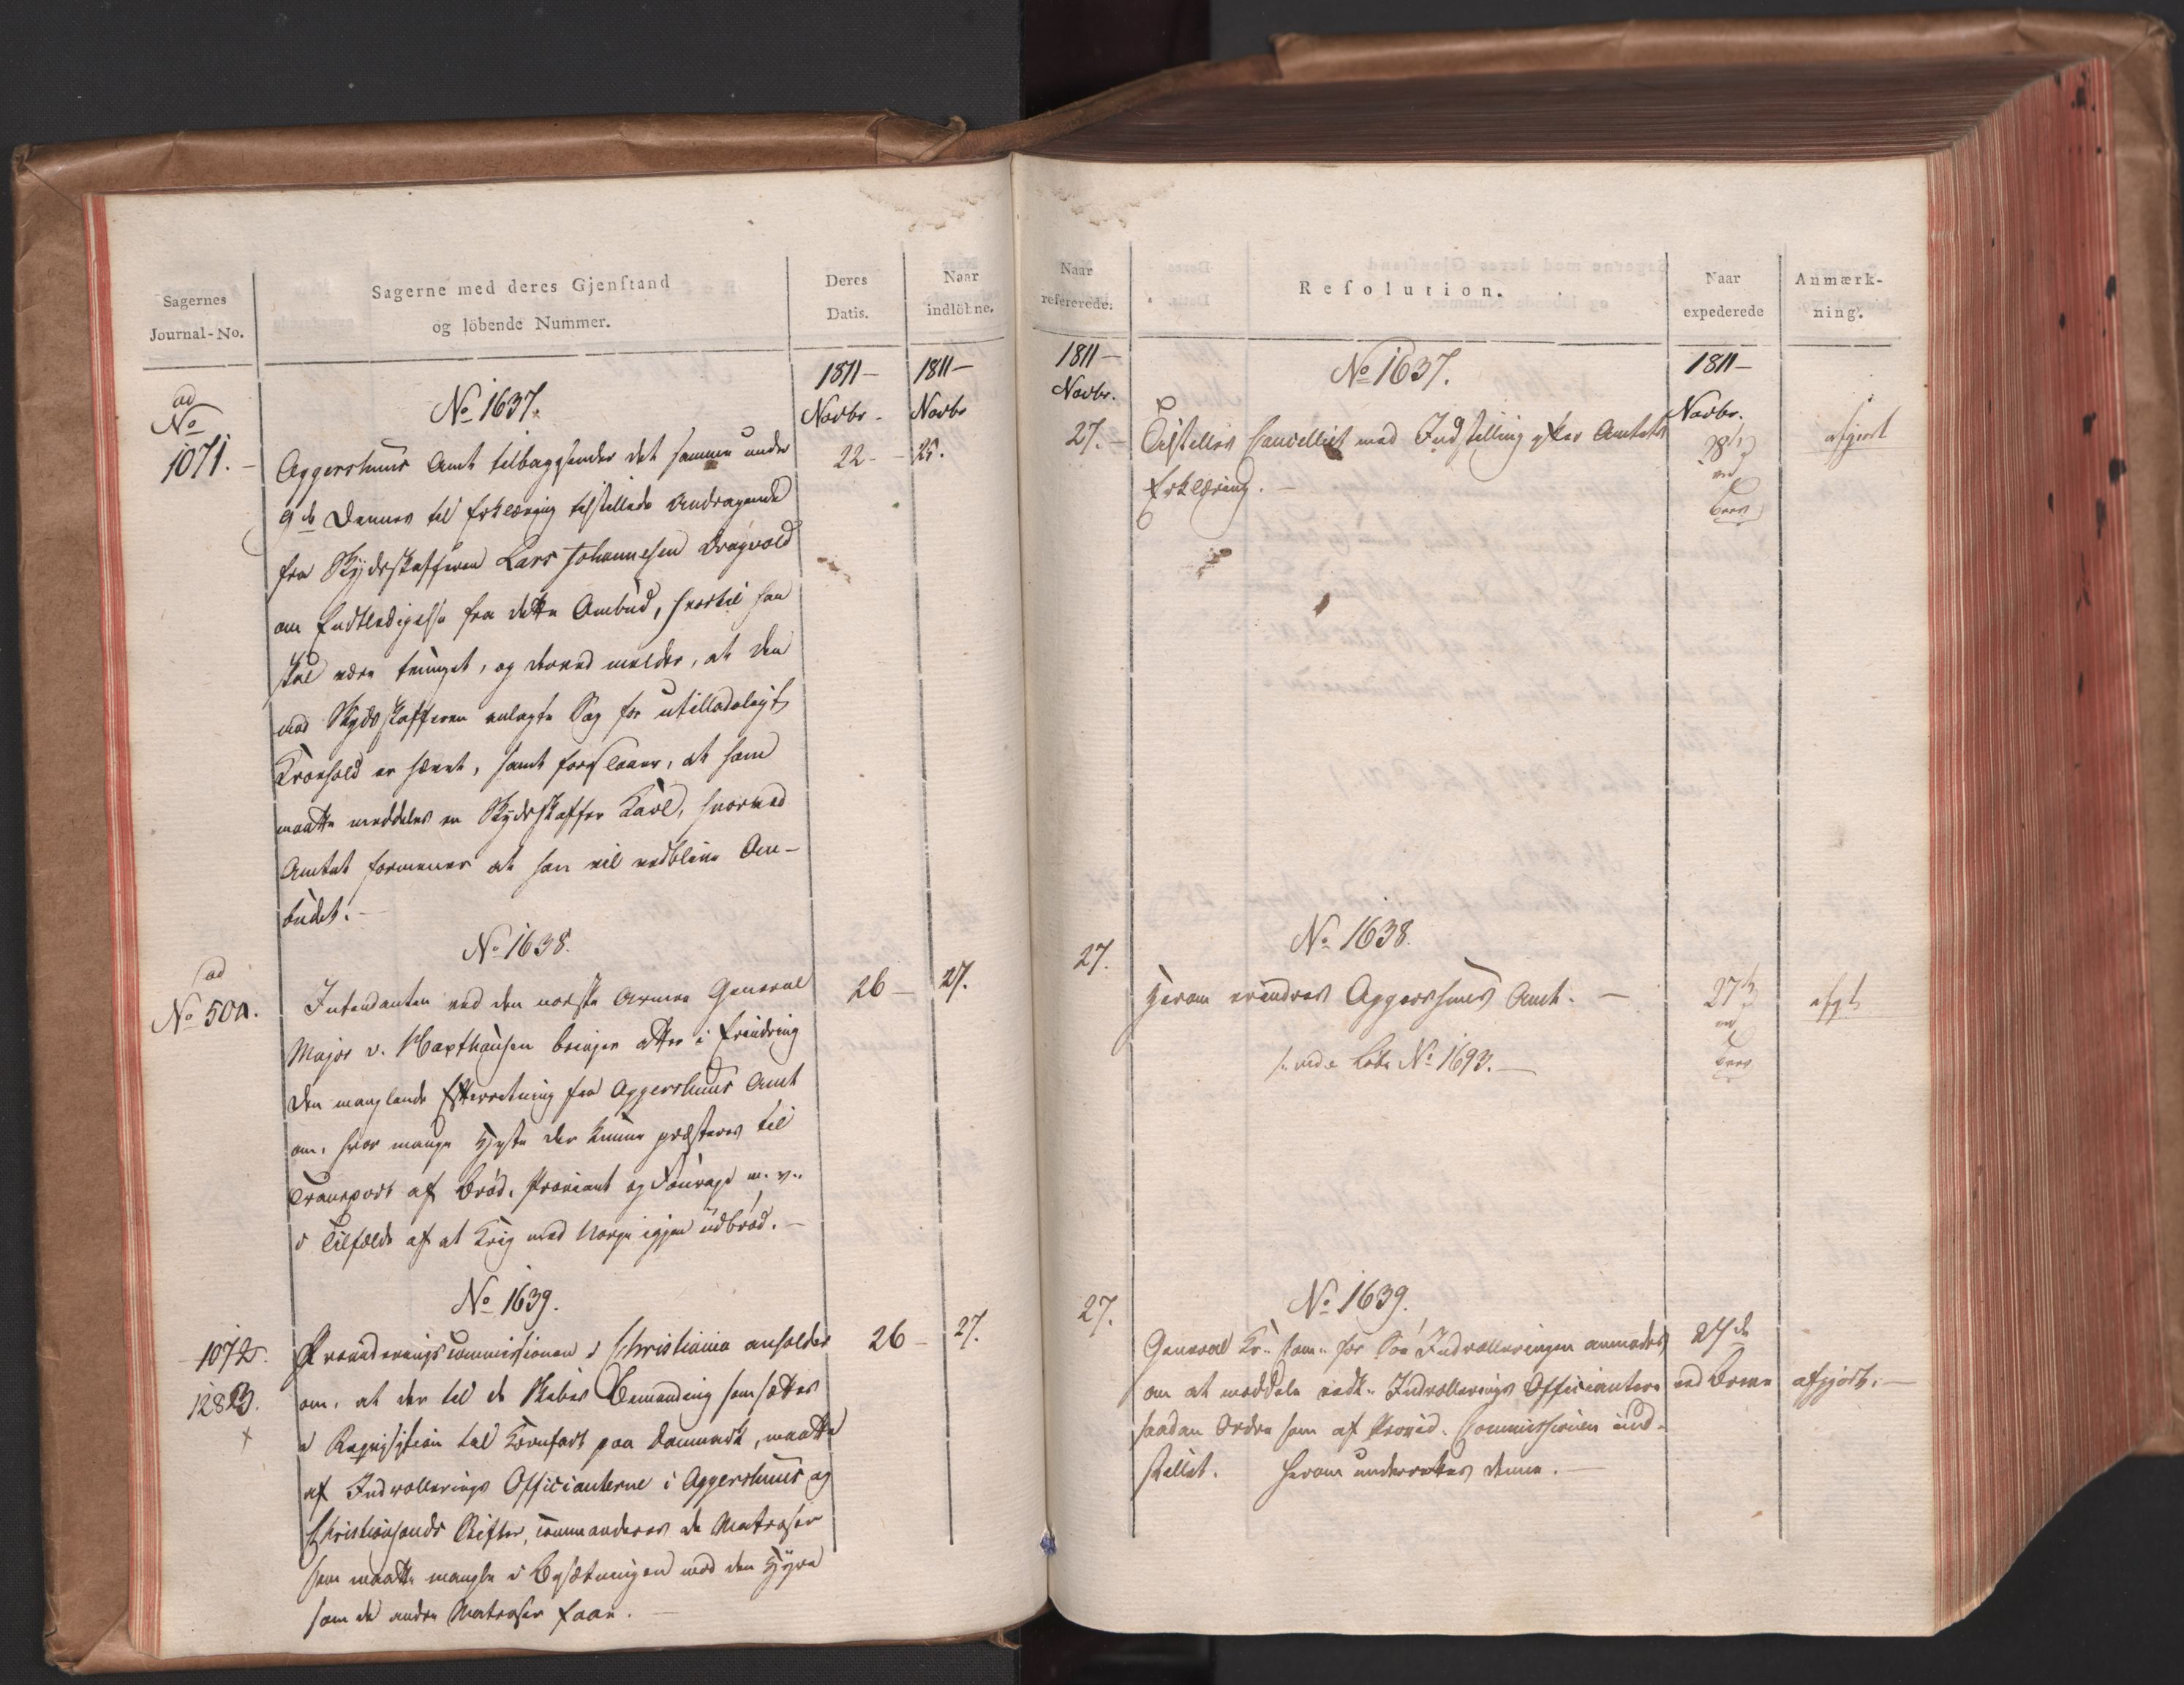 Sagernes
Journal-No.
Sagerne med deres Gjenstand
og löbende Nummer.
Deres
Datis.
Naar
indlöbne.
1811 —
Novbr. -
1811 —
Novbr
ad
No
1071. -
No 1637.
Aggershuus Amt tilbagesender det samme under
9de Dennes til Erklæring tilstillede Andragende
fra Skydsskafferen Lars Johannesen Dragvold
om Entledigelse fra dette Ombud, hvortil han
skal være tvunget, og derved melder, at den
mod Skydsskafferen anlagte Sag for utilladeligt
Kroehold er hævet, samt foreslaaer, at ham
maatte meddeles en Skydsskaffer Karl, hvorved
Amtet formener at han vil vedblive Om-
budet. —
22 -
25.
No 1638.
ad
No 500.
Intendanten ved den norske Armee General
Major v. Haxthausen bringer atter i Erindring
den manglende Efterretning fra Aggershuus Amt
om, hvor mange Heste der kunne præsteres til
Transport af Bröd, Proviant og Fourage m. v.
i Tilfælde af at Krig med Norge igjen udbröd. —
26 —
27.
No 1639.
1072.
1283.
x
Provideringscommissionen i Christiania anholder
om, at der til de Skibes Bemanding som sættes
i Reqvisition til Kornfart paa Danmark, maatte
af Indrollerings Officianterne i Aggershuus og
Christiansands Stifter, commanderes de Matroser
som maatte mangle i Besætningen mod den Hyre
som de andre Matroser faae. —
26 —
27.
Naar
refererede.
Resolution.
Naar
expederede
Anmærk-
ning.
1811 —
Novbr.
1811 —
Novbr.
No 1637.
27. -
Tilstilles Cancelliet med Indstilling efter Amtets
Erklæring. —
ved
afgjort
No 1638.
27.
Herom erindres Aggershuus Amt. —
/: vide Löbe No 1693. —
ved
afgt
No 1639.
27.
General Kr. Com. for Söe Indrolleringen anmodes
om at meddele vedk. Indrollerings Officiantere
saadan Ordre som af Provid. Commissionen ind-
stillet. Herom underrettes denne. —
27de
afgjort. —